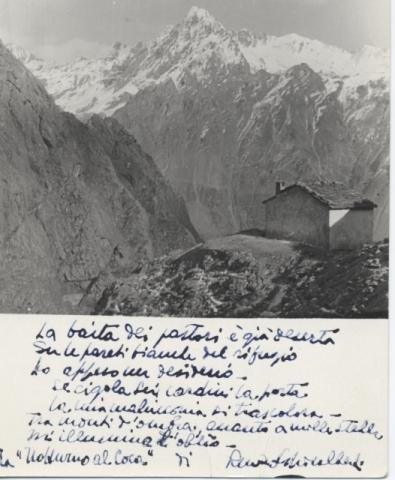 La baita dei pastori è già deserta
Sulle pareti bianche del rifugio
ho appeso un desiderio -
Se cigola sui cardini la porta
la mia malinconia si trascolora -
Tra monti d'ombra, quanto a molle stelle
mi illumina l'oblio -
"Notturno al Coca" di